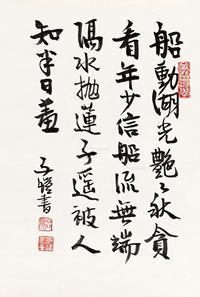 船動湖光艷艷秋貪
看年少信船流無端
隔水拋蓮子遥被人
知半日羞